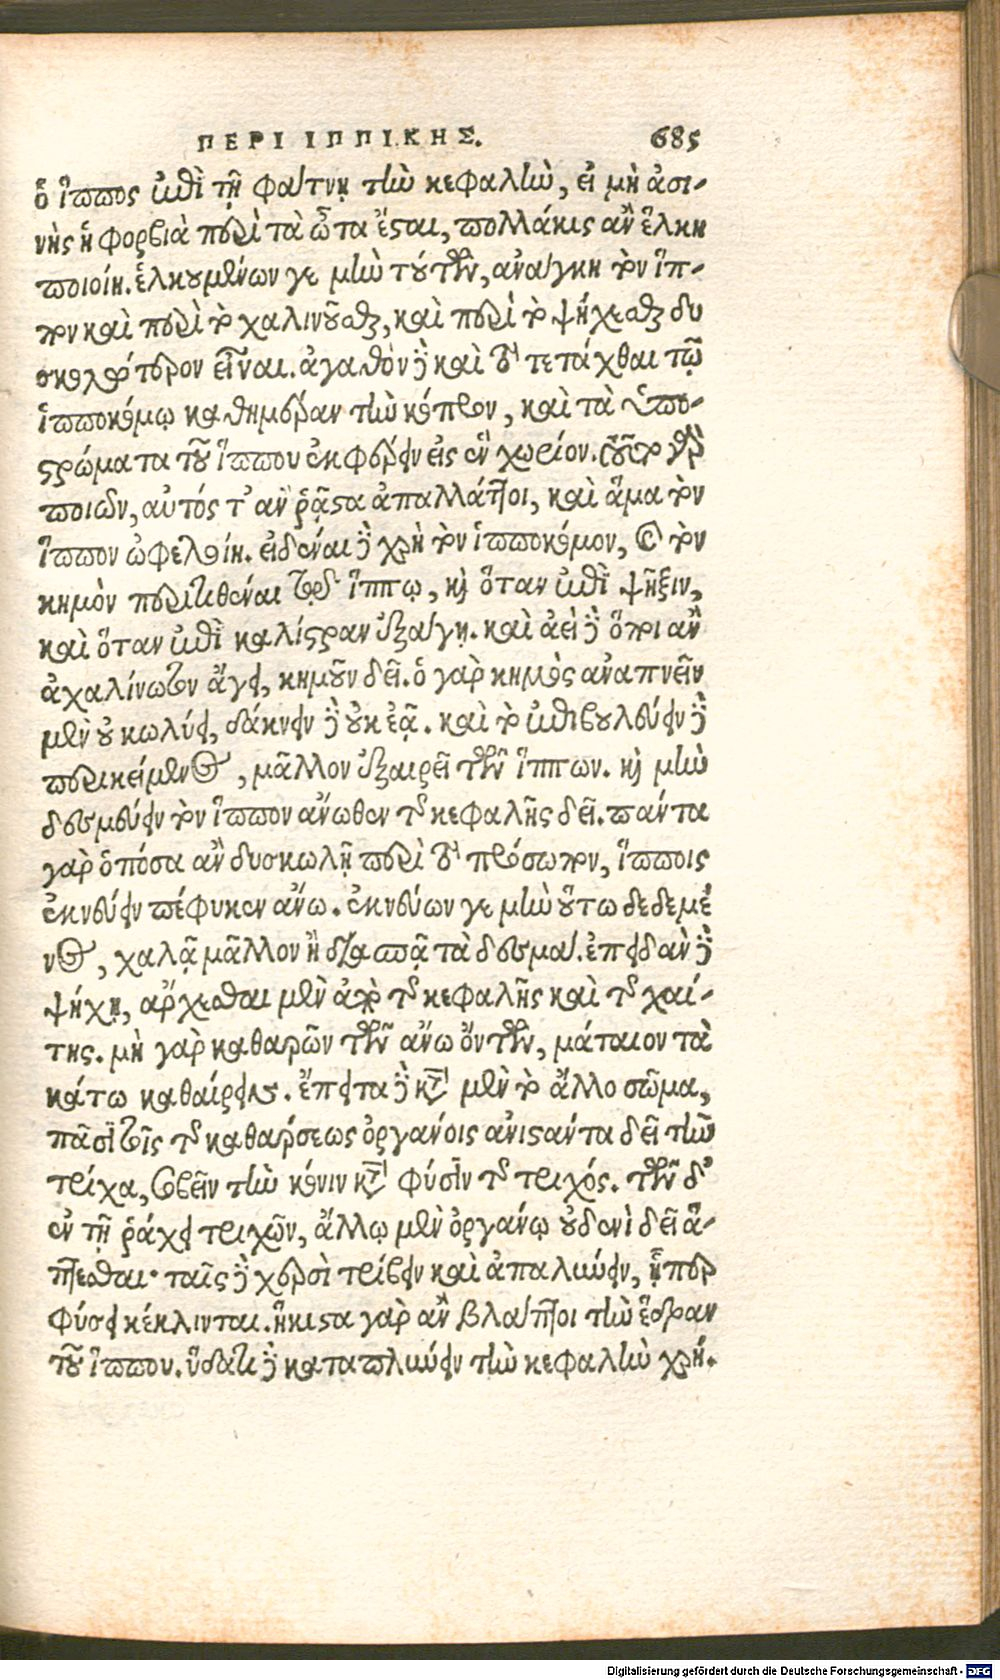 ΠΕΡΙ ΙΠΠΙΚΗΣ. 685
ὁ ἵππος ἐπὶ τῇ φάτνῃ τὴν κεφαλὴν, εἰ μὴ ἀσι-
νὴς ἡ φορβιὰ περὶ τὰ ὦτα ἔσται, πολλάκις ἂν ἕλκη
ποιοίη. ἑλκουμένων γε μὴν τούτων, ἀνάγκη τὸν ἵπ-
πον καὶ περὶ τὸ χαλινοῦσθαι, καὶ περὶ τὸ ψήχεσθαι δυ
σκολώτερον εἶναι. ἀγαθὸν δὲ καὶ τὸ τετάχθαι τῷ
ἱπποκόμῳ καθημέραν τὴν κόπρον, καὶ τὰ ὑπο-
στρώματα τοῦ ἵππου ἐκφέρειν εἰς ἓν χωρίον. τοῦτο γὰρ
ποιῶν, αὐτός τ' ἂν ῥᾷστα ἀπαλλάττοι, καὶ ἅμα τὸν
ἵππον ὠφελοίη. εἰδέναι δὲ χρὴ τὸν ἱπποκόμον, καὶ τὸν
κημὸν περιτιθέναι τῷ ἵππῳ, καὶ ὅταν ἐπὶ ψῆξιν,
καὶ ὅταν ἐπὶ καλίστραν ἐξάγῃ. καὶ ἀεὶ δὲ ὅποι ἂν
ἀχαλίνωτον ἄγει, κημοῦν δεῖ. ὁ γὰρ κημὸς ἀναπνεῖν
μὲν οὐ κωλύει, δάκνειν δὲ οὐκ ἐᾷ. καὶ τὸ ἐπιβουλεύειν δὲ
περικείμενος, μᾶλλον ἐξαιρεῖ τῶν ἵππων. καὶ μὴν
δεσμεύειν τὸν ἵππον ἄνωθεν τῆς κεφαλῆς δεῖ. πάντα
γὰρ ὁπόσα ἂν δυσκωλῇ περὶ τὸ πρόσωπον, ἵπποις
ἐκνεύειν πέφυκεν ἄνω. ἐκνεύων γε μὴν οὕτω δεδεμέ
νος, χαλᾷ μᾶλλον ἢ διασπᾷ τὰ δεσμά. ἐπειδὰν δὲ
ψήχῃ, ἄρχεσθαι μὲν ἀπὸ τῆς κεφαλῆς καὶ τῆς χαί-
της. μὴ γὰρ καθαρῶν τῶν ἄνω ὄντων, μάταιον τὰ
κάτω καθαίρειν. ἔπειτα δὲ κατὰ μὲν τὸ ἄλλο σῶμα,
πᾶσι τοῖς τῆς καθάρσεως ὀργάνοις ἀνιστάντα δεῖ τὴν
τρίχα, σοβεῖν τὴν κόνιν κατὰ φύσιν τῆς τριχός. τῶν δ'
ἐν τῇ ῥάχει τριχῶν, ἄλλῳ μὲν ὀργάνῳ οὐδενὶ δεῖ ἅ-
πτεσθαι· ταῖς δὲ χερσὶ τρίβειν καὶ ἁπαλύνειν, ᾗπερ
φύσει κέκλινται. ἥκιστα γὰρ ἂν βλάπτοι τὴν ἕδραν
τοῦ ἵππου. ὕδατι δὲ καταπλύνειν τὴν κεφαλὴν χρή.
Digitalisierung gefördert durch die Deutsche Forschungsgemeinschaft - DFG